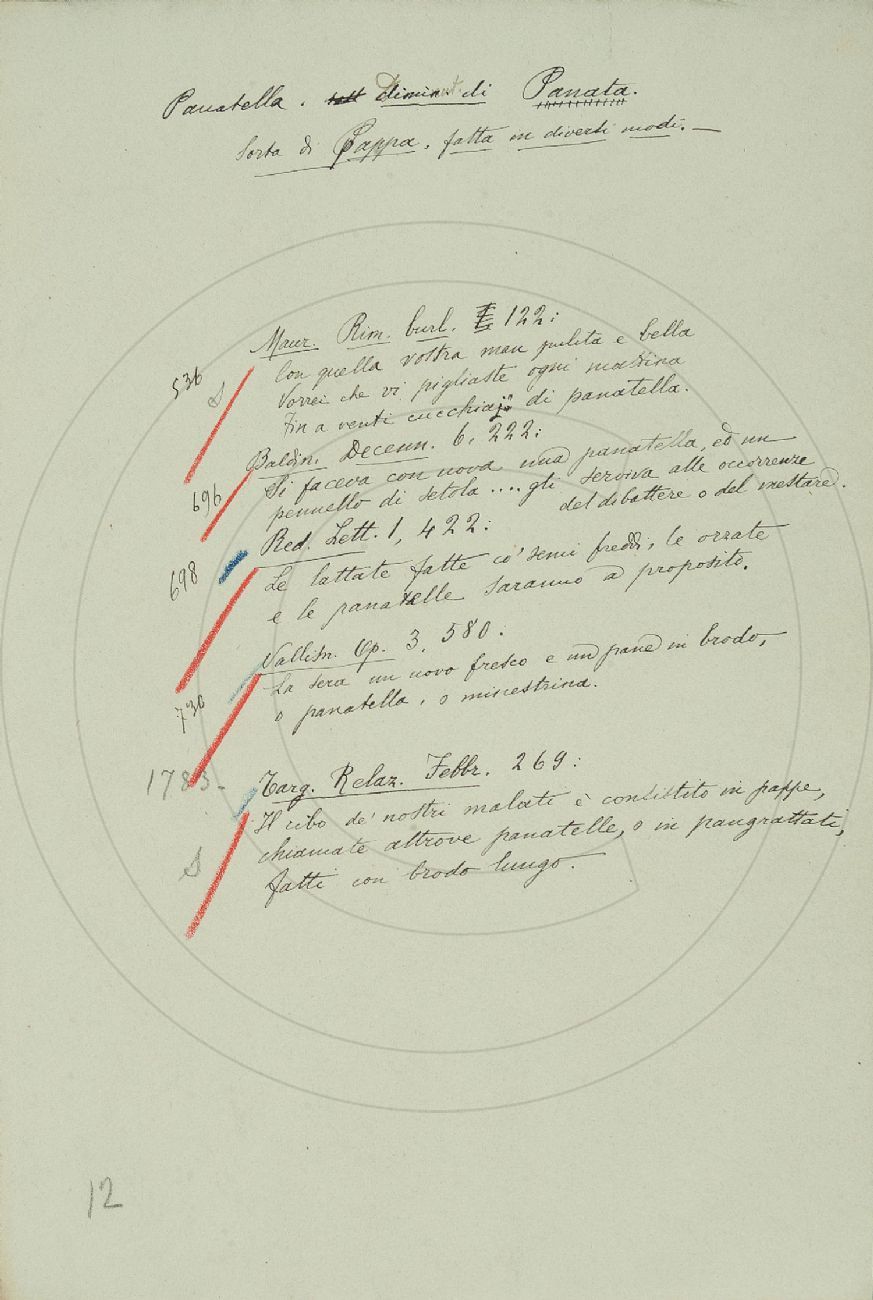 Panatella. Dimin. di Panata.
Sorta di Pappa, fatta in diversi modi. —
Maur. Rim. burl. 122:
536
Con quella vostra man pulita e bella
S
Vorrei che vi pigliaste ogni mattina
Fin a venti cucchiaj di panatella.
Baldin. Decenn. 6, 222:
696
Si faceva con uova una panatella, ed un
pennello di setola .... gli serviva alle occorrenze
del dibattere o del mestare.
Red. Lett. 1, 422:
698
Le lattate fatte co' semi freddi, le orzate
e le panatelle saranno a proposito.
Vallisn. Op. 3. 580:
730
La sera un uovo fresco e un pane in brodo,
o panatella, o minestrina.
1783-
Targ. Relaz. Febbr. 269:
Il cibo de' nostri malati è consistito in pappe,
chiamate altrove panatelle, o in pangrattati,
S
fatti con brodo lungo.
12